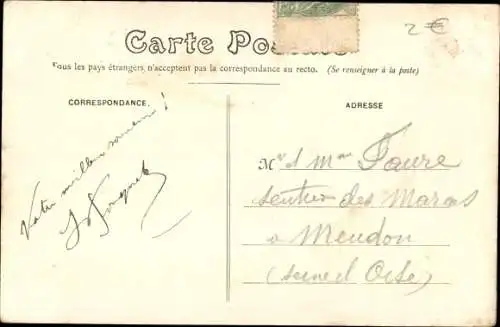 Carte Postale
Tous les pays étrangers n'acceptent pas la correspondance au recto. (Se renseigner à la poste)
2€
CORRESPONDANCE.
ADRESSE
Votre meilleur souvenir!
Mr & Mme Faure
sentier des Marais
à Meudon
(Seine et Oise)